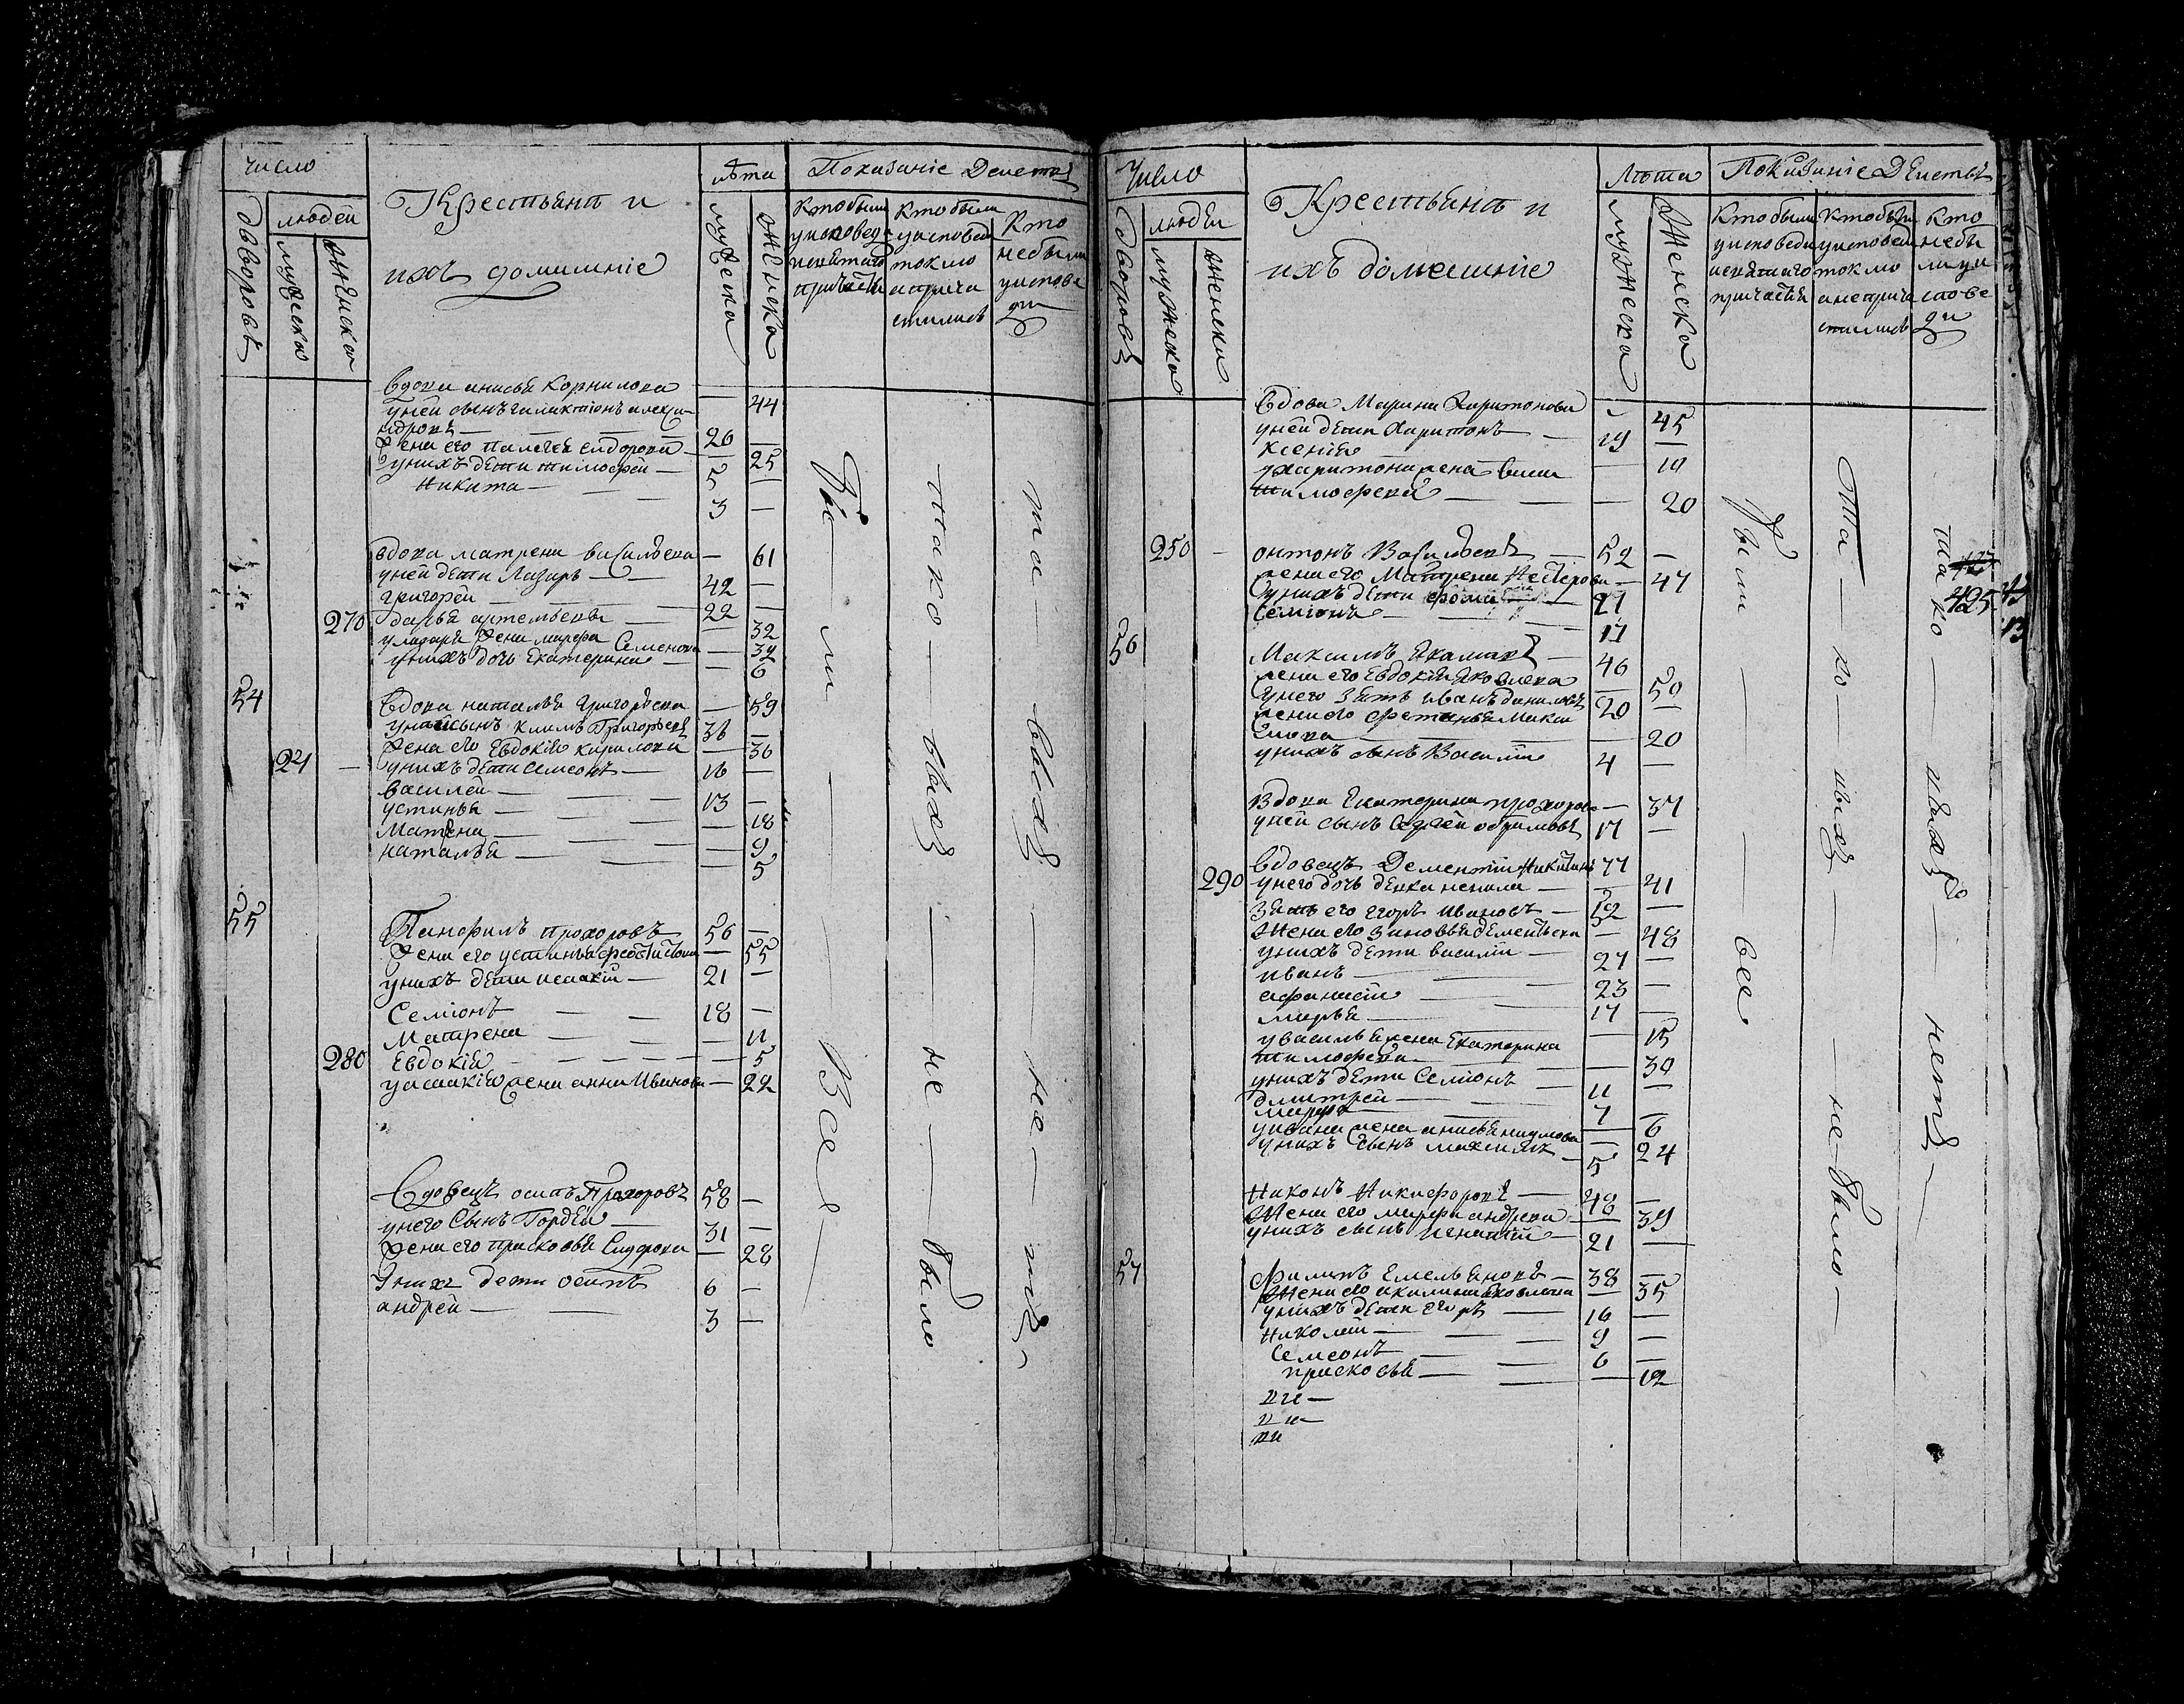 число
людей
дворовъ
мужеска
женска
Крестьянъ и
ихъ домашніе
лѣта
мужеска
женска
Показаніе Действъ
кто были
у исповеди
и святаго
причастія
кто были
у исповеди
токмо
а прича
стились
кто
небыли
у испове
ди
вдова анисья Корнилова 44
у ней сынъ галактіонъ алекса
ндровъ 26
жена его палагея сидорова 25
у нихъ дети тимофей 5
Никита 3
вдова матрена васильева 61
у ней дети Лазарь 42
григорей 22
270 дарья артемьева 32
у лазаря жена марфа Семенова 32
у нихъ дочь Екатерина 6
54 вдова наталья григорьева 59
у ней сынъ климъ Григорьевъ 36
жена его Евдокія кирилова 36
24 у нихъ дети Семеонъ 16
василей 13
устинья 18
Матрена 9
наталья 5
55 Панфилъ прохоровъ 56
жена его устинья 55
у нихъ дети исаакій 21
Семіонъ 18
Матрена 11
280 Евдокія 5
у исаакія жена анна Иванова 22
вдовецъ осипъ Прохоровъ 58
у него Сынъ Гордей 31
жена его прасковья Сидорова 28
У нихъ дети осипъ 6
андрей 3
Были Все
тако выхъ не было
та выхъ не тъ
Число
людей
дворовъ
мужеска
женска
Крестьянъ и
ихъ домашніе
Лѣта
мужеска
Женска
Показаніе Действъ
кто были
у исповеди
и святаго
причастія
кто были
у исповеди
токмо
а не прича
стились
кто
небы
ли у и
спове
ди
Вдова Марина Харитонова 45
у ней дети Харитонъ 19
ксенія 10
у харитона жена
тимофева 20
250 онтонъ Васильевъ 52
жена его Матрена Нестерова 47
у нихъ дети фома 21
Семіонъ 17
56 Максимъ 46
жена его Евдокія Яковлева 50
у него зять иванъ даниловъ 20
жена его фетинья Макси
мова 20
у нихъ сынъ Василій 4
Вдова Екатерина прохорова 37
у ней сынъ Сергей 17
вдовецъ Дементій Никитинъ 77
290 у него дочь девка ненила 41
зять его егоръ ивановъ 52
жена его зиновья дементьева 48
у нихъ дети василій 27
иванъ 23
афанасій 17
марья 15
у василья жена Екатерина
тимофева 30
у нихъ дети Семіонъ 11
дмитрей 7
марфа 6
у ивана жена анисья наумова 24
у нихъ сынъ максимъ 5
Никонъ Никифоровъ 48
Жена его марфа андреева 39
у нихъ сынъ игнатій 21
57 Филипъ Емельяновъ 38
Жена его акилина Яковлева 35
у нихъ дети егоръ 16
Николай 9
Семеонъ 6
прасковья 12
были все
та ко выхъ не было
тако выхъ нетъ
425